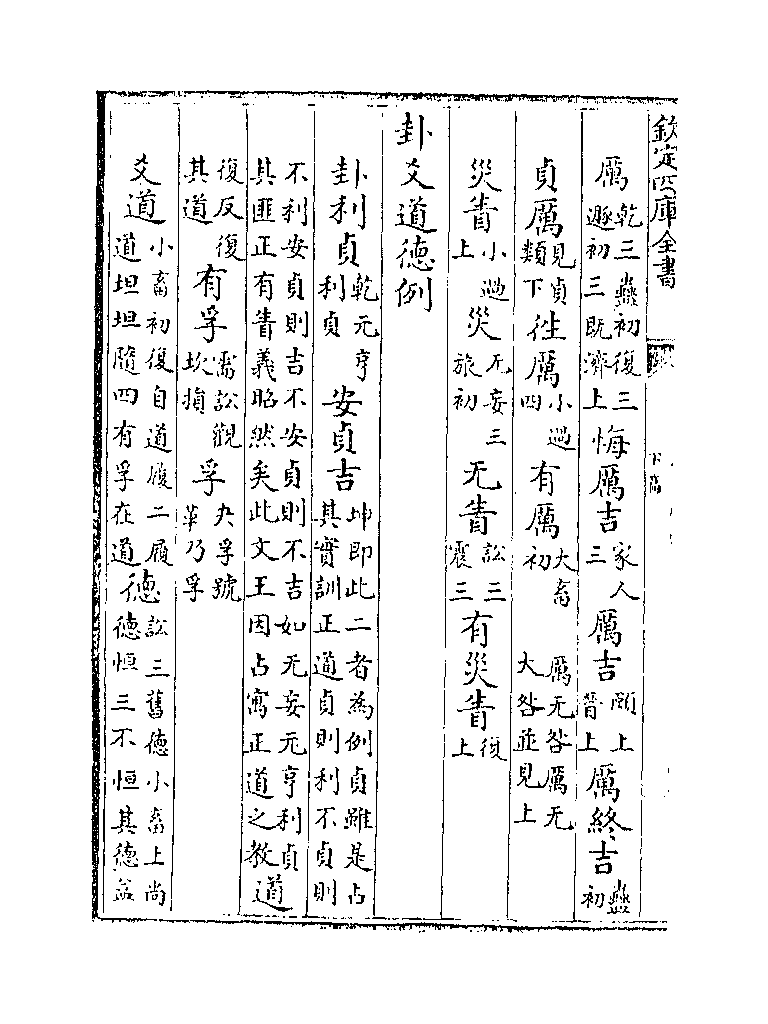 欽定四庫全書
厲乾三蠱初復三遯初三既濟上悔厲吉家人三厲吉頤上晉上厲終吉蠱初
貞厲見貞類下往厲小過四有厲大畜初厲无咎厲无大咎並見上
災眚小過上災无妄三旅初无眚訟三震三有災眚復上
卦爻道德例
卦利貞乾元亨利貞安貞吉坤即此二者為例貞雖是占其實訓正道貞則利不貞則
不利安貞則吉不安貞則不吉如无妄元亨利貞其匪正有眚義昭然矣此文王因占寓正道之教道
復反復其道有孚需訟觀坎損孚夬孚號萃乃孚
爻道小畜初復自道履二履道坦坦隨四有孚在道德訟三舊德小畜上尚德恒三不恒其德益